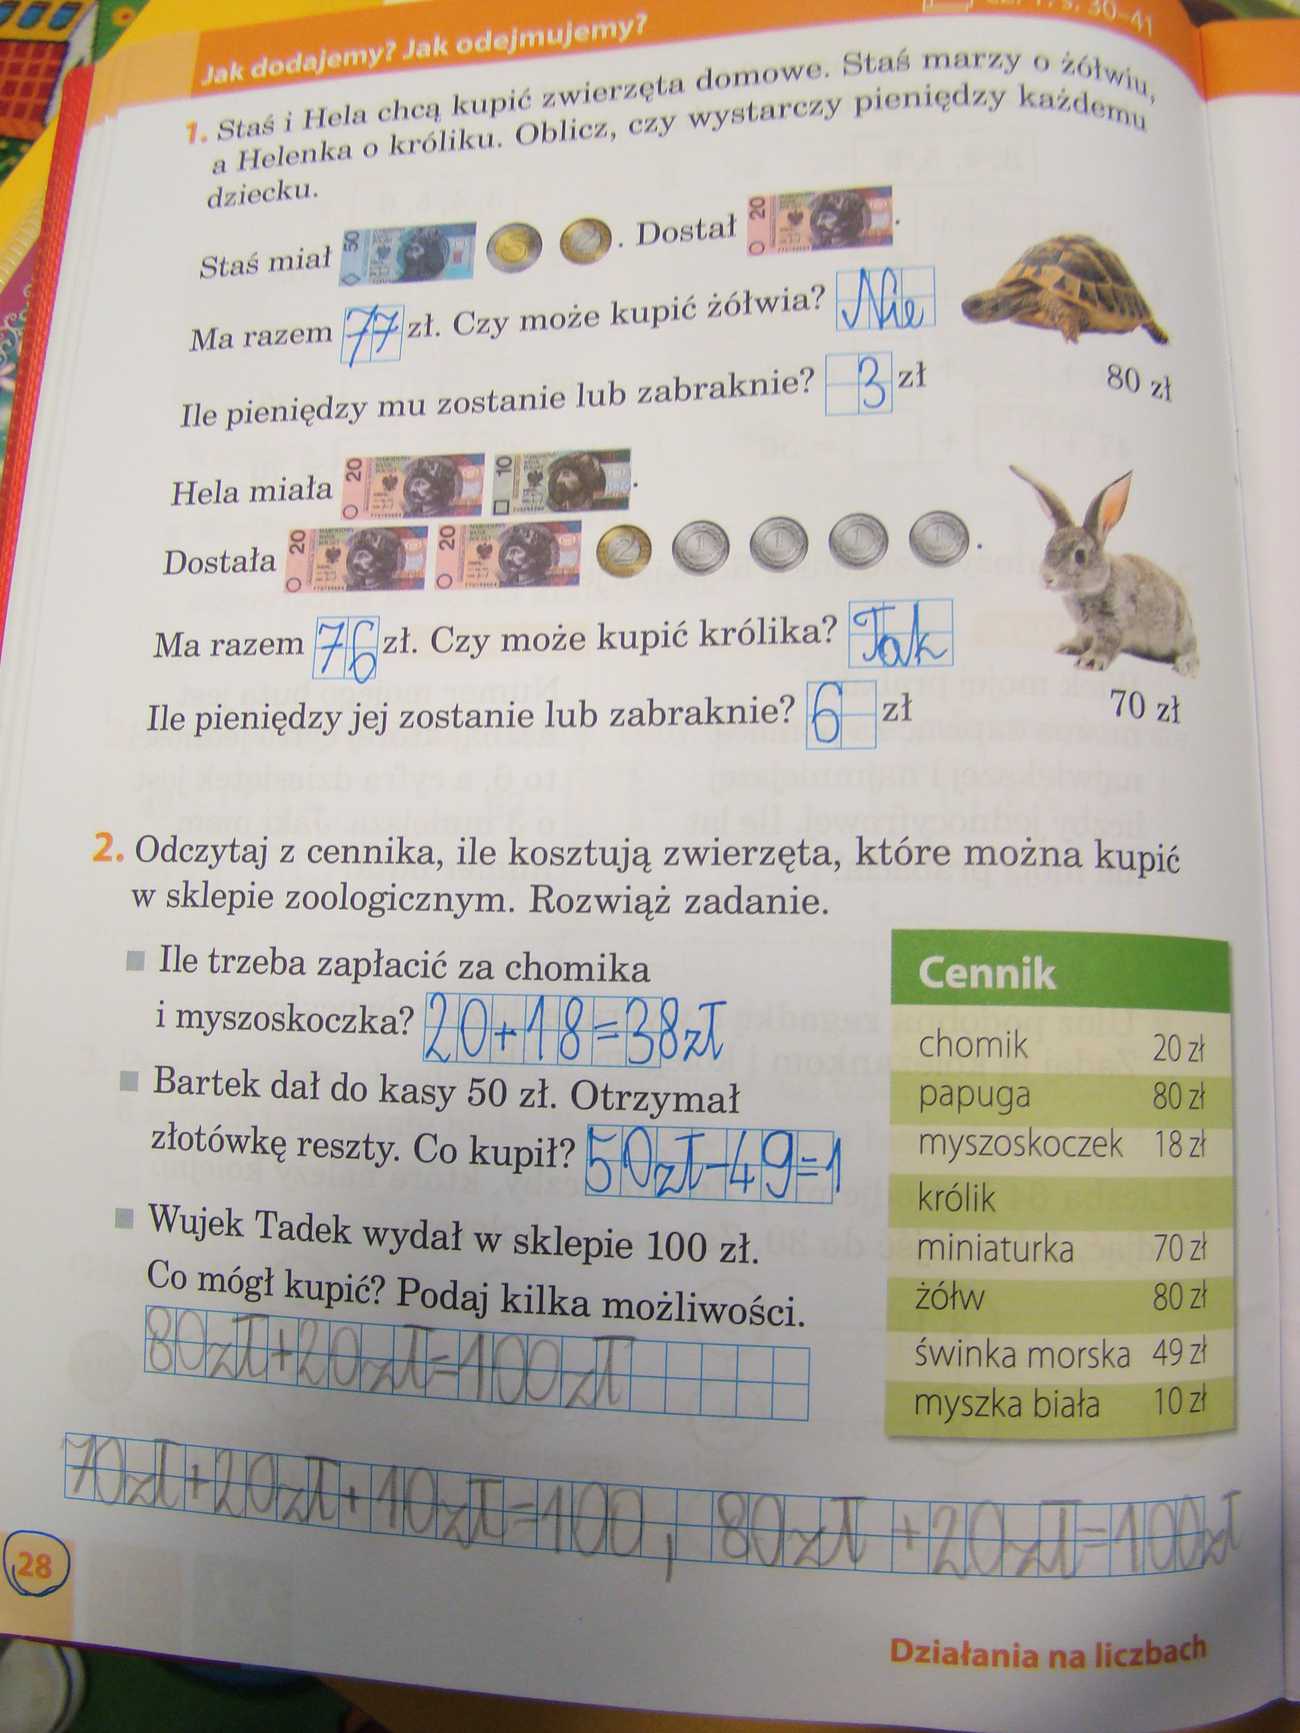 Jak dodajemy? Jak odejmujemy?
1. Staś i Hela chcą kupić zwierzęta domowe. Staś marzy o żółwiu,
a Helenka o króliku. Oblicz, czy wystarczy pieniędzy każdemu
dziecku.
Staś miał 50 5 2. Dostał 20.
Ma razem 77 zł. Czy może kupić żółwia? Nie
Ile pieniędzy mu zostanie lub zabraknie? 3 zł
80 zł
Hela miała 20 10.
Dostała 20 20 2 1 1 1 1.
Ma razem 76 zł. Czy może kupić królika? Tak
Ile pieniędzy jej zostanie lub zabraknie? 6 zł
70 zł
2. Odczytaj z cennika, ile kosztują zwierzęta, które można kupić
w sklepie zoologicznym. Rozwiąż zadanie.
Ile trzeba zapłacić za chomika
i myszoskoczka? 20+18=38zł
Bartek dał do kasy 50 zł. Otrzymał
złotówkę reszty. Co kupił? 50zł-49=1
Wujek Tadek wydał w sklepie 100 zł.
Co mógł kupić? Podaj kilka możliwości.
80zł+20zł=100zł
70zł+20zł+10zł=100, 80zł+20zł=100zł
Cennik
chomik 20 zł
papuga 80 zł
myszoskoczek 18 zł
królik
miniaturka 70 zł
żółw 80 zł
świnka morska 49 zł
myszka biała 10 zł
28
Działania na liczbach